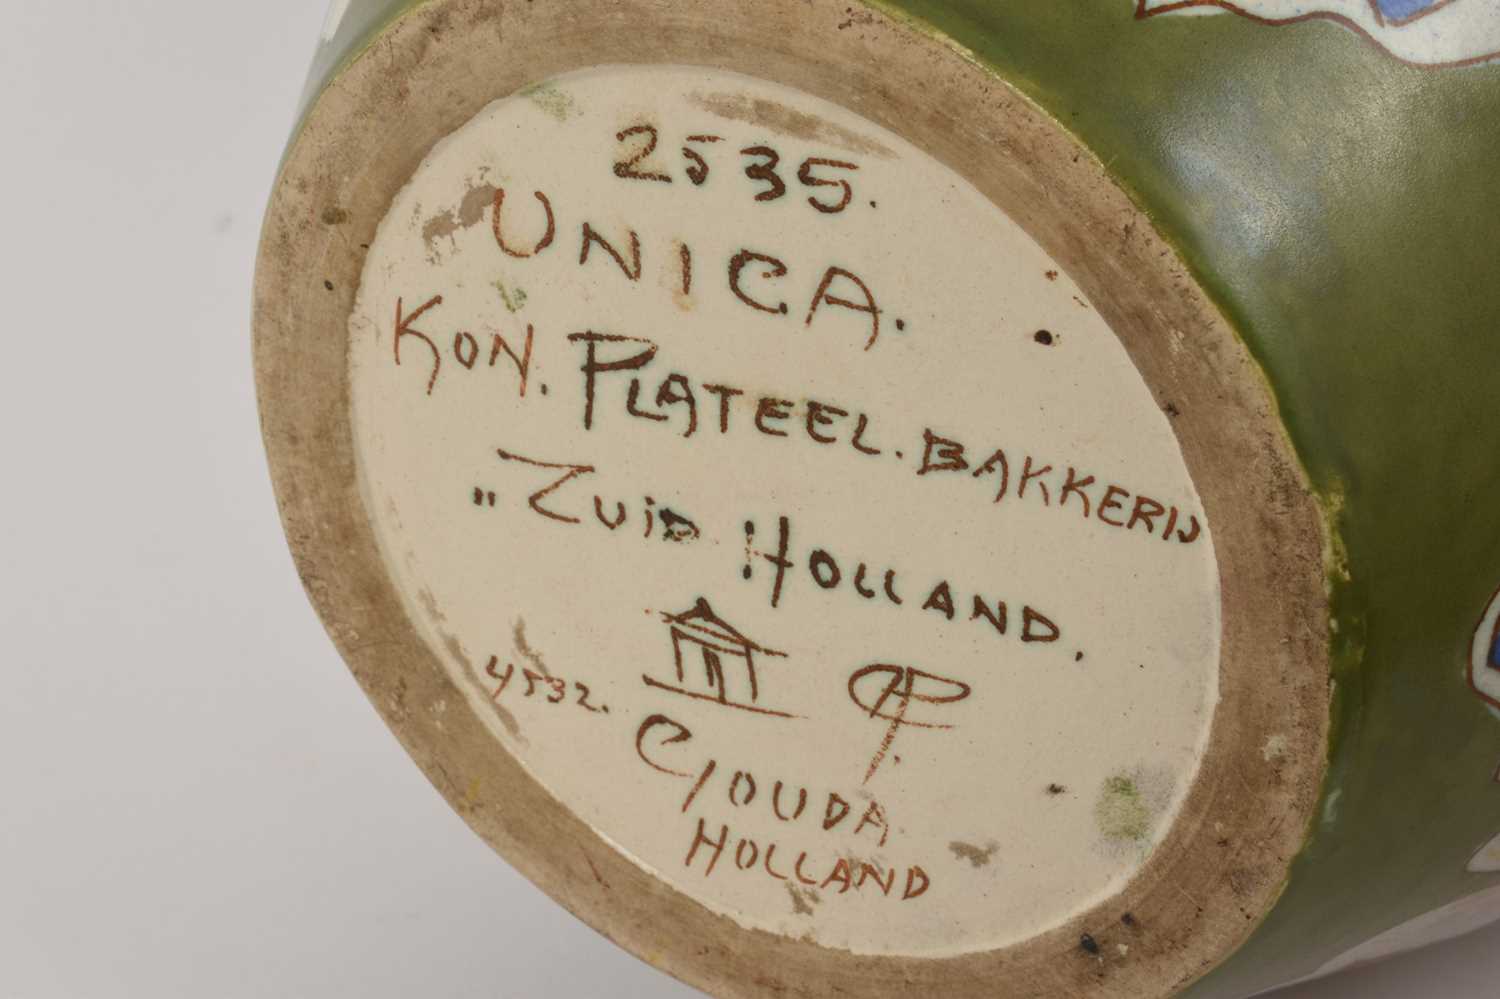 2535.
UNICA.
KON. PLATEEL. BAKKERIJ
„ZUID HOLLAND.
4532.
GOUDA
HOLLAND